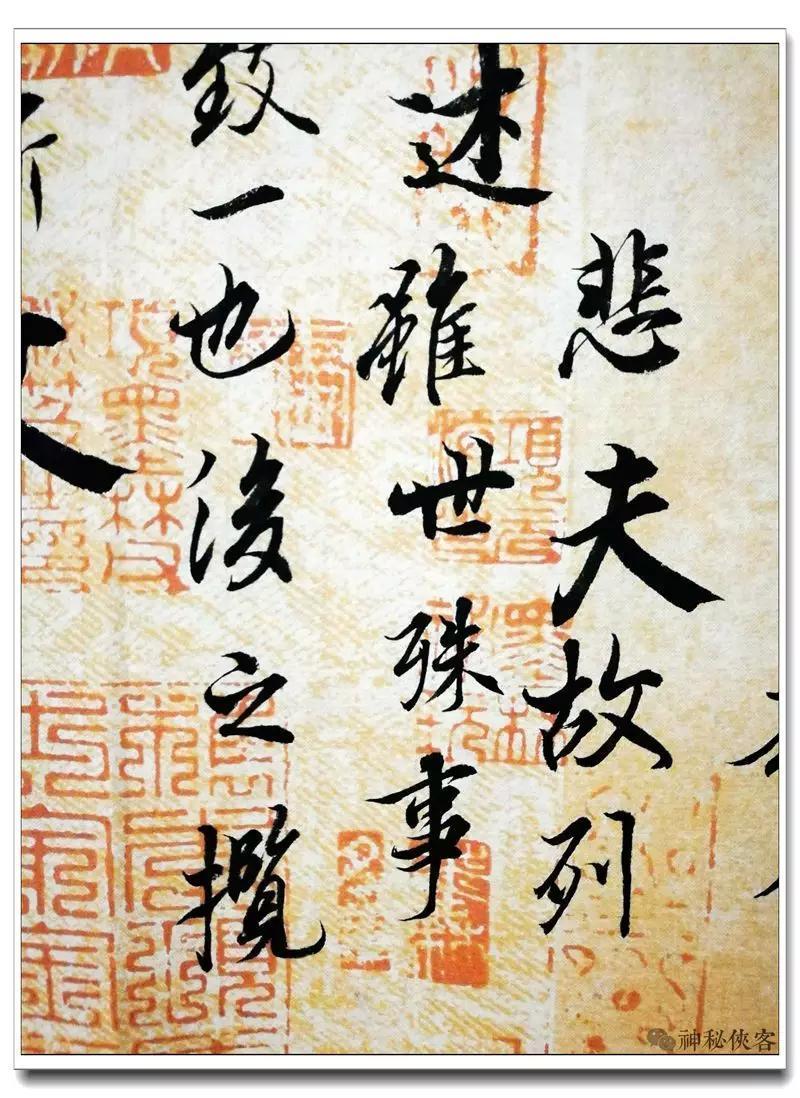 悲夫故列
述雖世殊事
致一也後之攬
神秘俠客